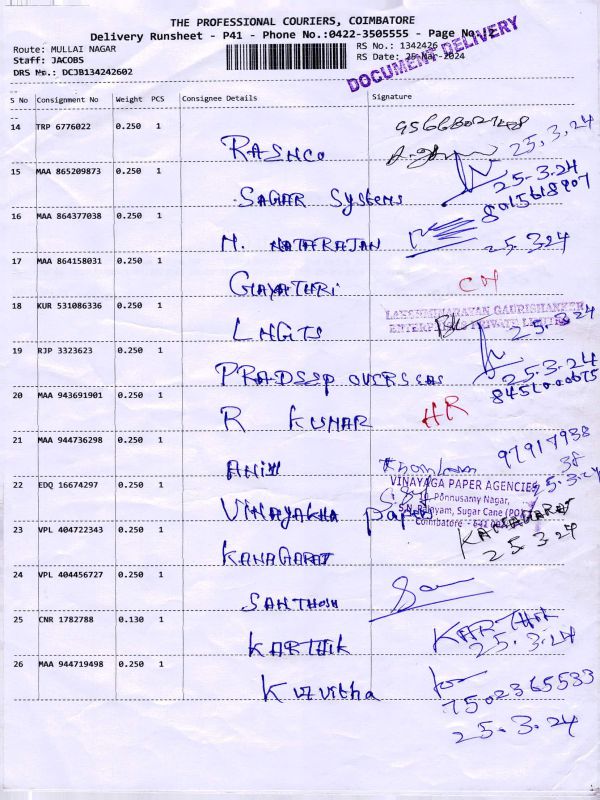 THE PROFESSIONAL COURIERS, COIMBATORE
Delivery Runsheet - P41 - Phone No.:0422-3505555 - Page No.:
DOCUMENT DELIVERY
Route: MULLAI NAGAR
RS No.: 1342426
Staff: JACOBS
RS Date: 25-Mar-2024
DRS No.: DCJB134242602
S No Consignment No Weight PCS Consignee Details Signature
14 TRP 6776022 0.250 1
RASHCO 25.3.24
15 MAA 865209873 0.250 1
25-3.24
SAGAR Systems 8015618907
16 MAA 864377038 0.250 1
M. NATARAJAN 25.324
17 MAA 864158031 0.250 1
GAYATHRI CN
18 KUR 531086336 0.250 1
LAKSHMINARAYAN GAURISHANKER
ENTERPRISES PRIVATE LIMITED
LHGTS 25.3.24
19 RJP 3323623 0.250 1
PRADEEP OVERSEAS 25.3.24
20 MAA 943691901 0.250 1
R KUMAR HR
21 MAA 944736298 0.250 1
97917938
38
25.3.24
22 EDQ 16674297 0.250 1
VINAYAGA PAPER AGENCIES
10, Ponnusamy Nagar,
S.N. Palayam, Sugar Cane (PO)
Coimbatore - 641 007
VINAYAKHA papers
23 VPL 404722343 0.250 1
KANAGARAT KANAGARAT
25.3.24
24 VPL 404456727 0.250 1
SANTHOSH
25 CNR 1782788 0.130 1
KARTHIK KARTHIK
25.3.24
26 MAA 944719498 0.250 1
7502365533
25.3.24